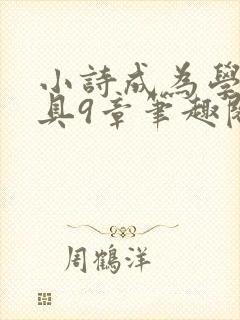 小詩成為學
具9章筆趣閣
周鶴洋